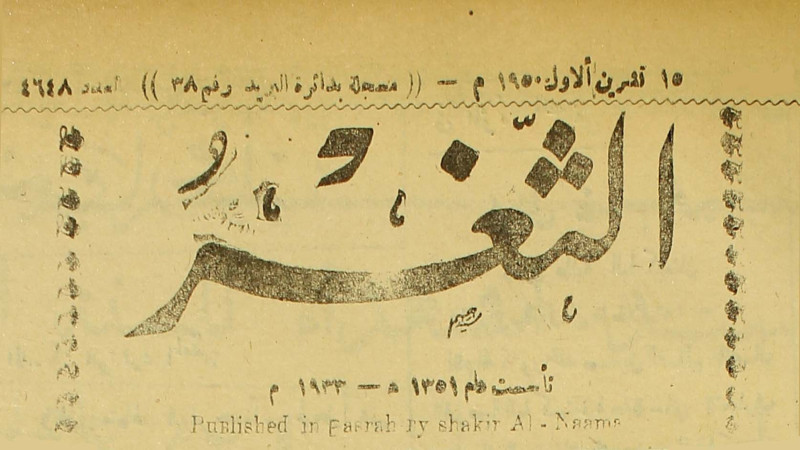 ١٥ تشرين ألاول ١٩٥٠ م — (( مسجلة بدائرة البريد رقم ٣٨ )) العدد ٤٦٤٨
الثَّغْرُ
تأسست عام ١٣٥١ ه — ١٩٣٣ م
Published in Basrah by shakir Al - Naama